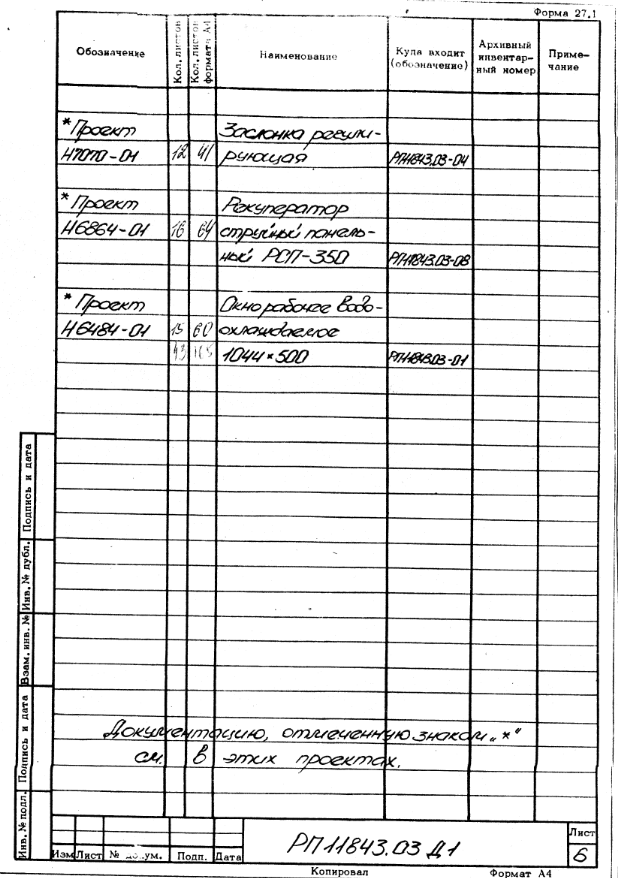 Форма 27.1
Обозначение
Кол. листов
Кол. листов формата А4
Наименование
Куда входит (обозначение)
Архивный инвентарный номер
Примечание
* Проект Заслонка регули-
Н7070-01 12 41 рующая РП11843.03-04
* Проект Рекуператор
Н6864-01 16 64 струйный панель-
ный РСП-350 РП11843.03-08
* Проект Окно рабочее водо-
Н6484-01 15 60 охлаждаемое
1044×500 РП11843.03-01
Документацию, отмеченную знаком „*"
см. в этих проектах.
Подпись и дата
Инв. № дубл.
Взам. инв. №
Подпись и дата
Инв. № подл.
Изм Лист № докум. Подп. Дата
РП11843.03 Д1
Лист
6
Копировал
Формат А4